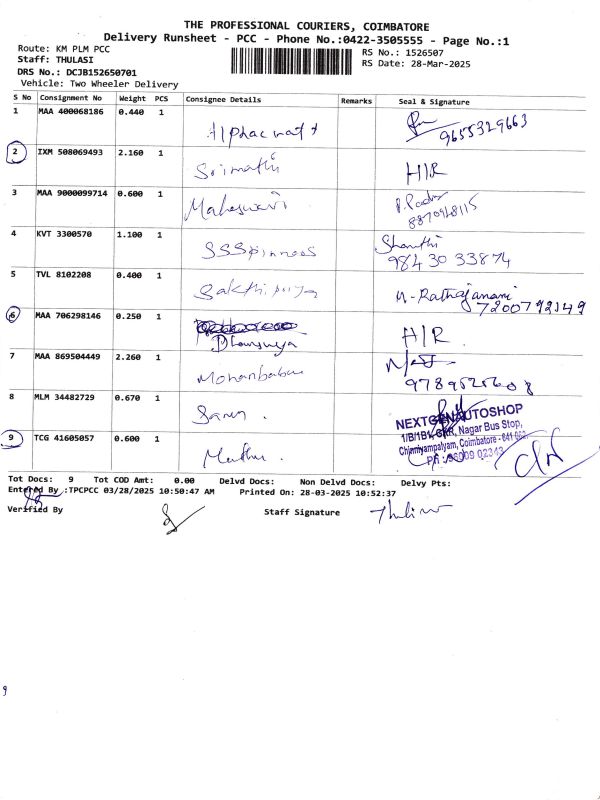 THE PROFESSIONAL COURIERS, COIMBATORE
Delivery Runsheet - PCC - Phone No.:0422-3505555 - Page No.:1
Route: KM PLM PCC
RS No.: 1526507
Staff: THULASI
RS Date: 28-Mar-2025
DRS No.: DCJB152650701
Vehicle: Two Wheeler Delivery
S No Consignment No Weight PCS Consignee Details Remarks Seal & Signature
1 MAA 400068186 0.440 1 9655329663
2 IXM 508069493 2.160 1 Srimathi H/R
3 MAA 9000099714 0.600 1 Maheswari
4 KVT 3300570 1.100 1 SSSpinners Shanthi
98430 33874
5 TVL 8102208 0.400 1 Sakthi priya
7200792149
6 MAA 706298146 0.250 1 H/R
7 MAA 869504449 2.260 1 Mohanbabu
8 MLM 34482729 0.670 1
NEXTGEN AUTOSHOP
Nagar Bus Stop,
Chinniyampalayam, Coimbatore - 641
9 TCG 41605057 0.600 1 Madhu.
Tot Docs: 9 Tot COD Amt: 0.00 Delvd Docs: Non Delvd Docs: Delvy Pts:
Entered By :TPCPCC 03/28/2025 10:50:47 AM Printed On: 28-03-2025 10:52:37
Verified By Staff Signature